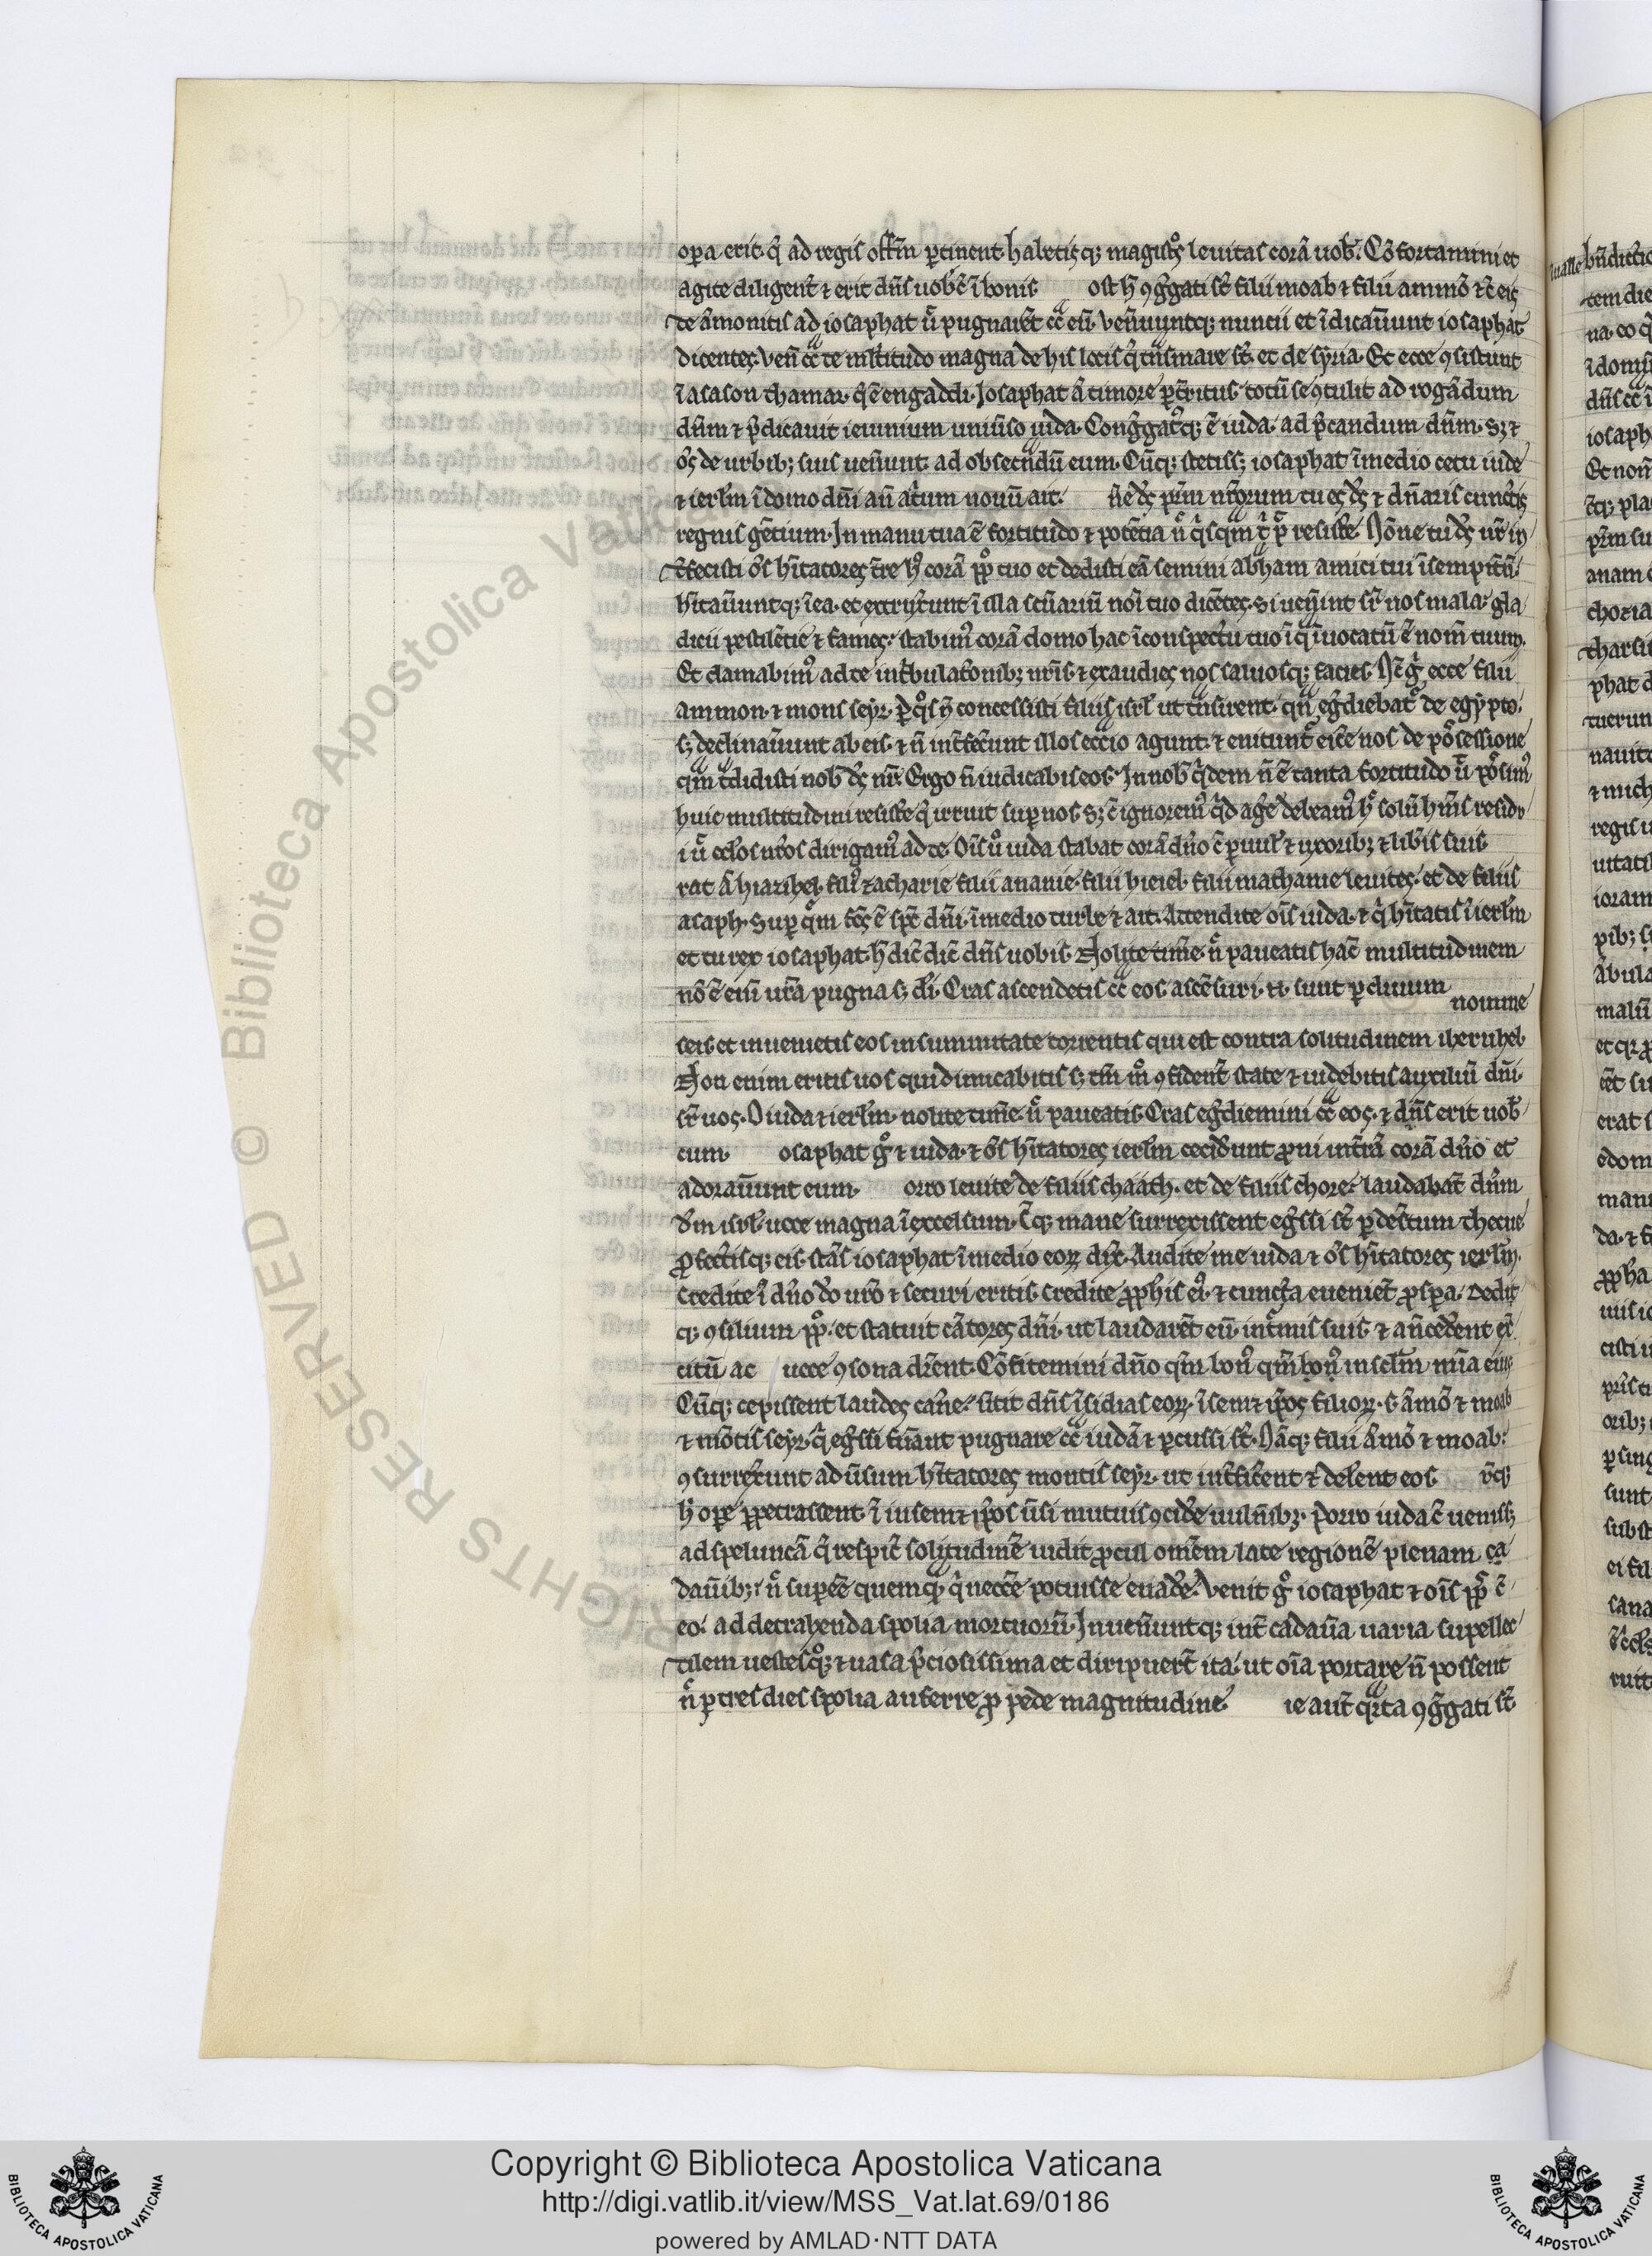 opa erit. q̄ ad regis offm̄ ꝑtinent. habetisq; magisͬos leuitas corā uob̄. Cōfortamini et
agite diligent̄ ⁊ erit dn̄s uob c̄ ī bonis ost h̄ ꝯgͣgati st̄ filii moab ⁊ filii ammō ⁊ c̄ eis
de āmonitis ad iosaphat ut̄ pugnarēt cͣ eū. Ven̄untq; nuncii et īdicaūunt iosaphat
dicentes. ven̄ cͣ te multitudo magna de his locis q̄ tͣnsmare st̄. et de syria. Et ecce ꝯsistunt
ī asason thamar. q̄ ē engaddi. Iosaphat ā timore ꝑt̄ritus. totū se ꝯtulit ad rogādum
dn̄m ⁊ p̄dicauit ieiunium uniūso iuda. Congͣgatꝰq; ē iuda. ad p̄candum dn̄m. s; ⁊
ōs de urbib; suis uen̄unt. ad obsecͣndū eum. Cūq; stetiss; iosaphat ī medio cetu iude
⁊ ierlm̄ ī domo dn̄i an̄ atͥum nouū ait. n̄e ds̄ pr̄m nr̄orum tu es ds̄ ⁊ dn̄aris cunctis
regnis gētium. In manu tua ē fortitudo ⁊ potētia n̄ qͥsqͣm tͥ p̄t resistͤe. Nōne tu ds̄ nr̄ int̄
fecisti ōs hītatores t̄re hͦ corā ppͦlo tuo et dedisti eā semini abͣham amici tui ī sempitͤnū.
hītaūuntq; ī ea. et ext̄xͤunt ī illa sc̄uariū noī tuo dicētes. Si uen̄int sr̄ nos mala. gla
dicii pestilētie ⁊ fames. stabimꝰ corā domo hac ī conspectu tuo ī qͣ īuocatū ē nom̄ tuum.
Et clamabimꝰ ad te in tͥbulatōnib; nr̄is. ⁊ exaudies nos saluosq; facies. Nc̄ gͥ ecce filii
ammon. ⁊ mons seyr. ꝑ qͦs n̄ concessisti filiis isrl̄ ut tͣnsirent. qn̄ egͤdiebatͬ de egypto.
s; declinaūunt ab eis. ⁊ n̄ int̄fecͤunt illos ecͦtͥo agunt. ⁊ enitunt̄ eicͤe nos de pōsessione
qͣm tͣdidisti nob̄ ds̄ nr̄. Ergo n̄ iudicabis eos. In nob̄ qͥdem n̄ ē tanta fortitudo ut̄ pōsimꝰ
huic multitudini resistͤe q̄ irruit suꝑ nos. S; c̄ ignoremꝰ qͥd agͤe debeamꝰ hͦ solū hēmꝰ residu
i ut̄ oclͦos nr̄os dirigamꝰ ad te. Oīs uͦ iuda stabat corā dn̄o c̄ ꝑuul̄ ⁊ uxorib; ⁊ lib̄is suis
rat ā hiazihel. filiꝰ zacharie filii ananie. filii hieiel. filii mathanie leuites. et de filiis
asaph. Suꝑ qͥm fc̄s ē spc̄ dn̄i. ī medio turbe ⁊ ait. Attendite oīs iuda. ⁊ qͥ hītatis ī ierlm̄
et tu rex iosaphat. h̄ dic̄ dic̄ dn̄s uobis. Nolite timͤe. n̄ paueatis hāc multitudinem
nō ē eni̅ ur̄a pugna s; di̅. Cras ascendetis cͣ eos. ascēsuri. n̄. sunt ꝑ cliuum nomine
seis. et inuenietis eos in summitate torrentis qui est contra solitudinem iheruhel.
Non enim eritis uos qui dimicabitis s; tm̄ mͦ ꝯfident̄ state ⁊ uidebitis auxiliū dn̄i.
sr̄ uos. O iuda ⁊ ierlm̄. nolite timͤe. n̄ paueatis. Cras egͤdiemini cͣ eos. ⁊ dn̄s erit uob̄
cum. osaphat gͦ ⁊ iuda. ⁊ ōs hītatores ierlm̄ cecidͤunt ꝓni in tͤrā corā dn̄o et
adoraūunt eum. orro leuite de filiis chaath. et de filiis chore. laudabāt dn̄m
dm̄ isrl̄ uoce magna ī excelsum. Cūq; mane surrexissent egͤssi st̄ ꝑ desͤtum thecue
ꝓfectisq; eis. stās iosaphat ī medio eoꝝ dix̄. Audite me iuda ⁊ ōs hītatores ierlm̄.
Credite ī dn̄o dō uro̅ ⁊ securi eritis. Credite ꝓphis ei ⁊ cuncta eueniēt ꝓspͤa. Dedit
q; ꝯsilium ppͦlo. et statuit cātores dn̄i. ut laudarēt eū. in tͥmis suis. ⁊ an̄cedͤent ex̄
citū ac uoce ꝯsona dicͤent. Cōfitemini dn̄o qm̄ bonꝰ qm̄ bonꝰ in sclm̄ mīa eius
Cūq; cepissent laudes canͤe. ūtit dn̄s īsidias eoꝝ. ī sem⁊ iꝑos filioꝝ. s. āmō ⁊ moab
⁊ mōtis seyr. qͥ egͤssi fūant pugnare cͣ iudā ⁊ ꝑcussi st̄. Nāq; filii āmō ⁊ moab.
ꝯsurrexͤunt adūsum hītatores montis seyr. ut int̄ficͤent ⁊ delͤent eos. v̄q;
h̄ opͤe ꝑpetrassent. ī iusem⁊ iꝑos ūsi mutuis ꝯcidͤe uulnīb;. Porro iuda c̄ ueniss;
ad speluncā q̄ respic̄ solitudinē uidit ꝓcul omēm late regionē plenam ca
daūib;. n̄ supͤesse quemqͣ. qͥ necͤe potuisse euadͤe. Venit gͦ iosaphat ⁊ oīs ppͦls c̄
eo. ad detrahenda spolia mortuorū. Inuen̄untq; int̄ cadaūa uaria supellec
tilem uestesqͦ; ⁊ uasa p̄ciosissima et diripuerūt ita. ut oīa portare n̄ possent
n̄ ꝑ tres dies spolia auferre ꝓ pͤde magnitudine. ie aut̄ qͣrta ꝯgͣgati st̄
Copyright © Biblioteca Apostolica Vaticana
http://digi.vatlib.it/view/MSS_Vat.lat.69/0186
powered by AMLAD·NTT DATA